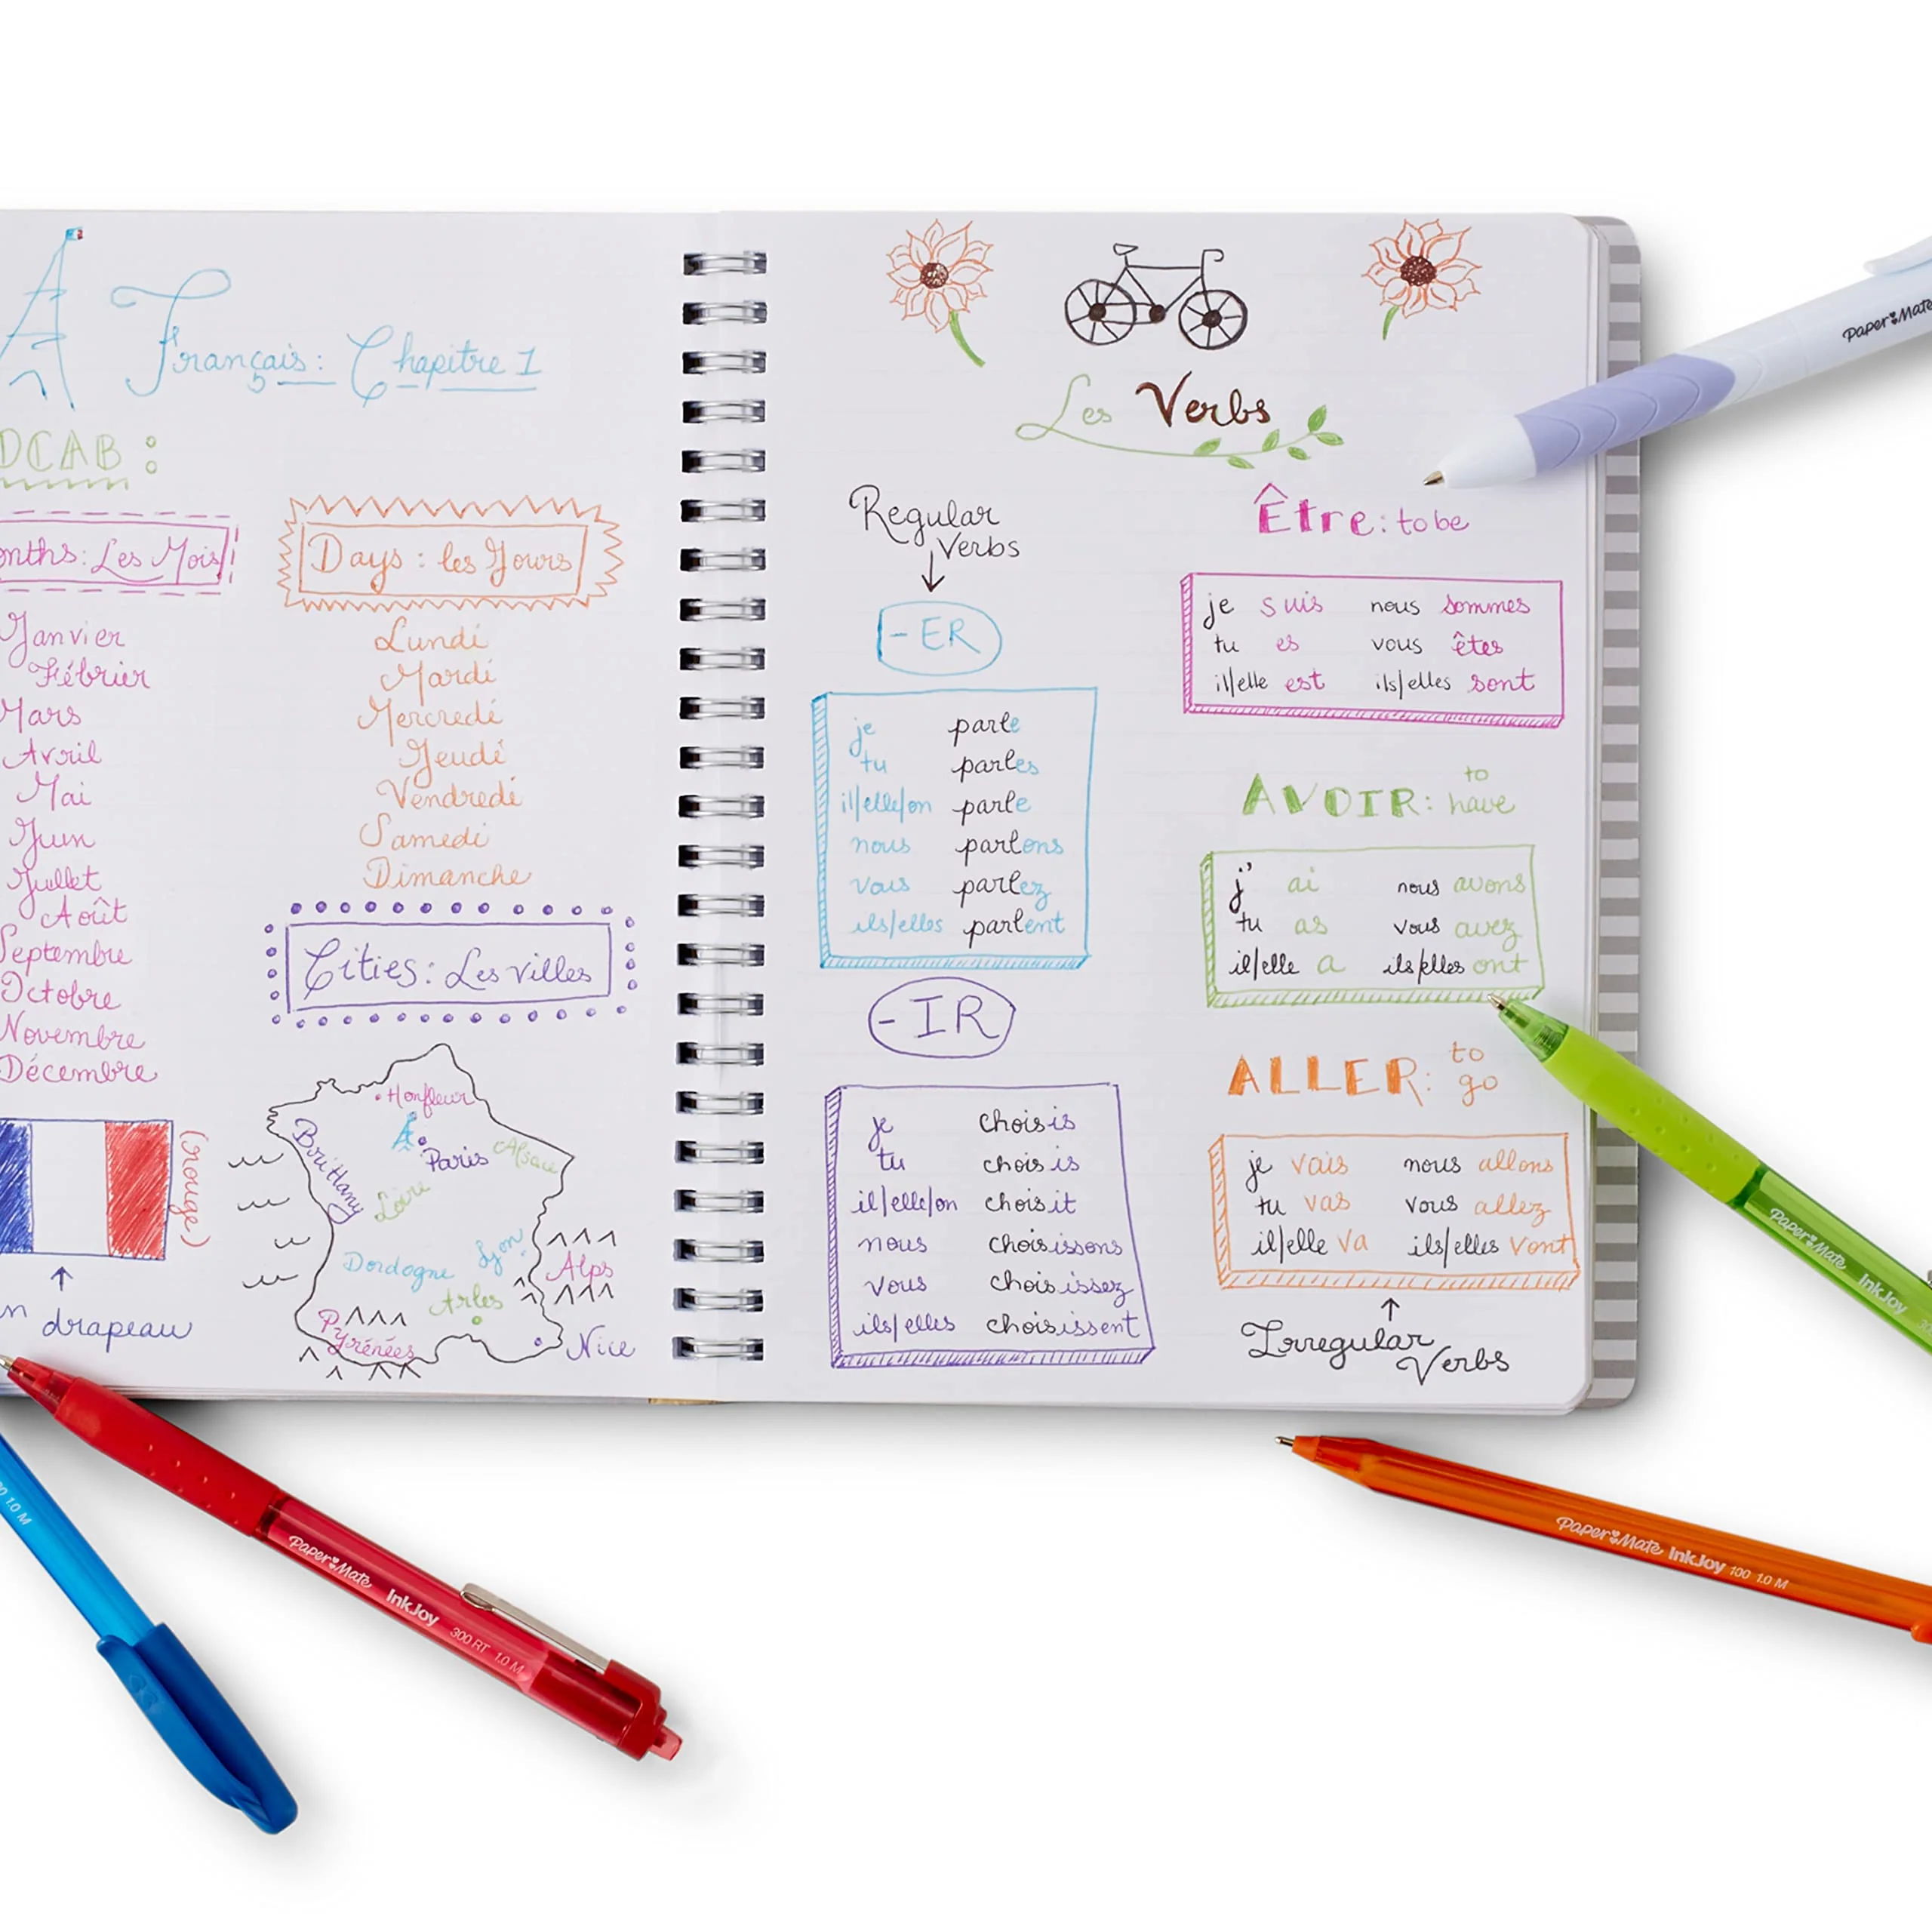 Français: Chapitre 1
OCAB:
onths: Les Mois
Janvier
Fébrier
Mars
Avril
Mai
Juin
Juillet
Août
Septembre
Octobre
Novembre
Décembre
(rouge)
un drapeau
Days: les Jours
Lundi
Mardi
Mercredi
Jeudi
Vendredi
Samedi
Dimanche
Cities: Les villes
Honfleur
Brittany
Paris
Alsace
Loire
Dordogne
Lyon
Alps
Arles
Pyrénées
Nice
Les Verbs
Regular
Verbs
-ER
je parle
tu parles
il/elle/on parle
nous parlons
vous parlez
ils/elles parlent
-IR
je choisis
tu choisis
il/elle/on choisit
nous choisissons
vous choisissez
ils/elles choisissent
Être: to be
je suis nous sommes
tu es vous êtes
il/elle est ils/elles sont
AVOIR: to have
j' ai nous avons
tu as vous avez
il/elle a ils/elles ont
ALLER: to go
je vais nous allons
tu vas vous allez
il/elle va ils/elles vont
Irregular
Verbs
Paper Mate
Paper Mate InkJoy
Paper Mate InkJoy 100 1.0 M
Paper Mate InkJoy 300 RT 1.0 M
1.0 M